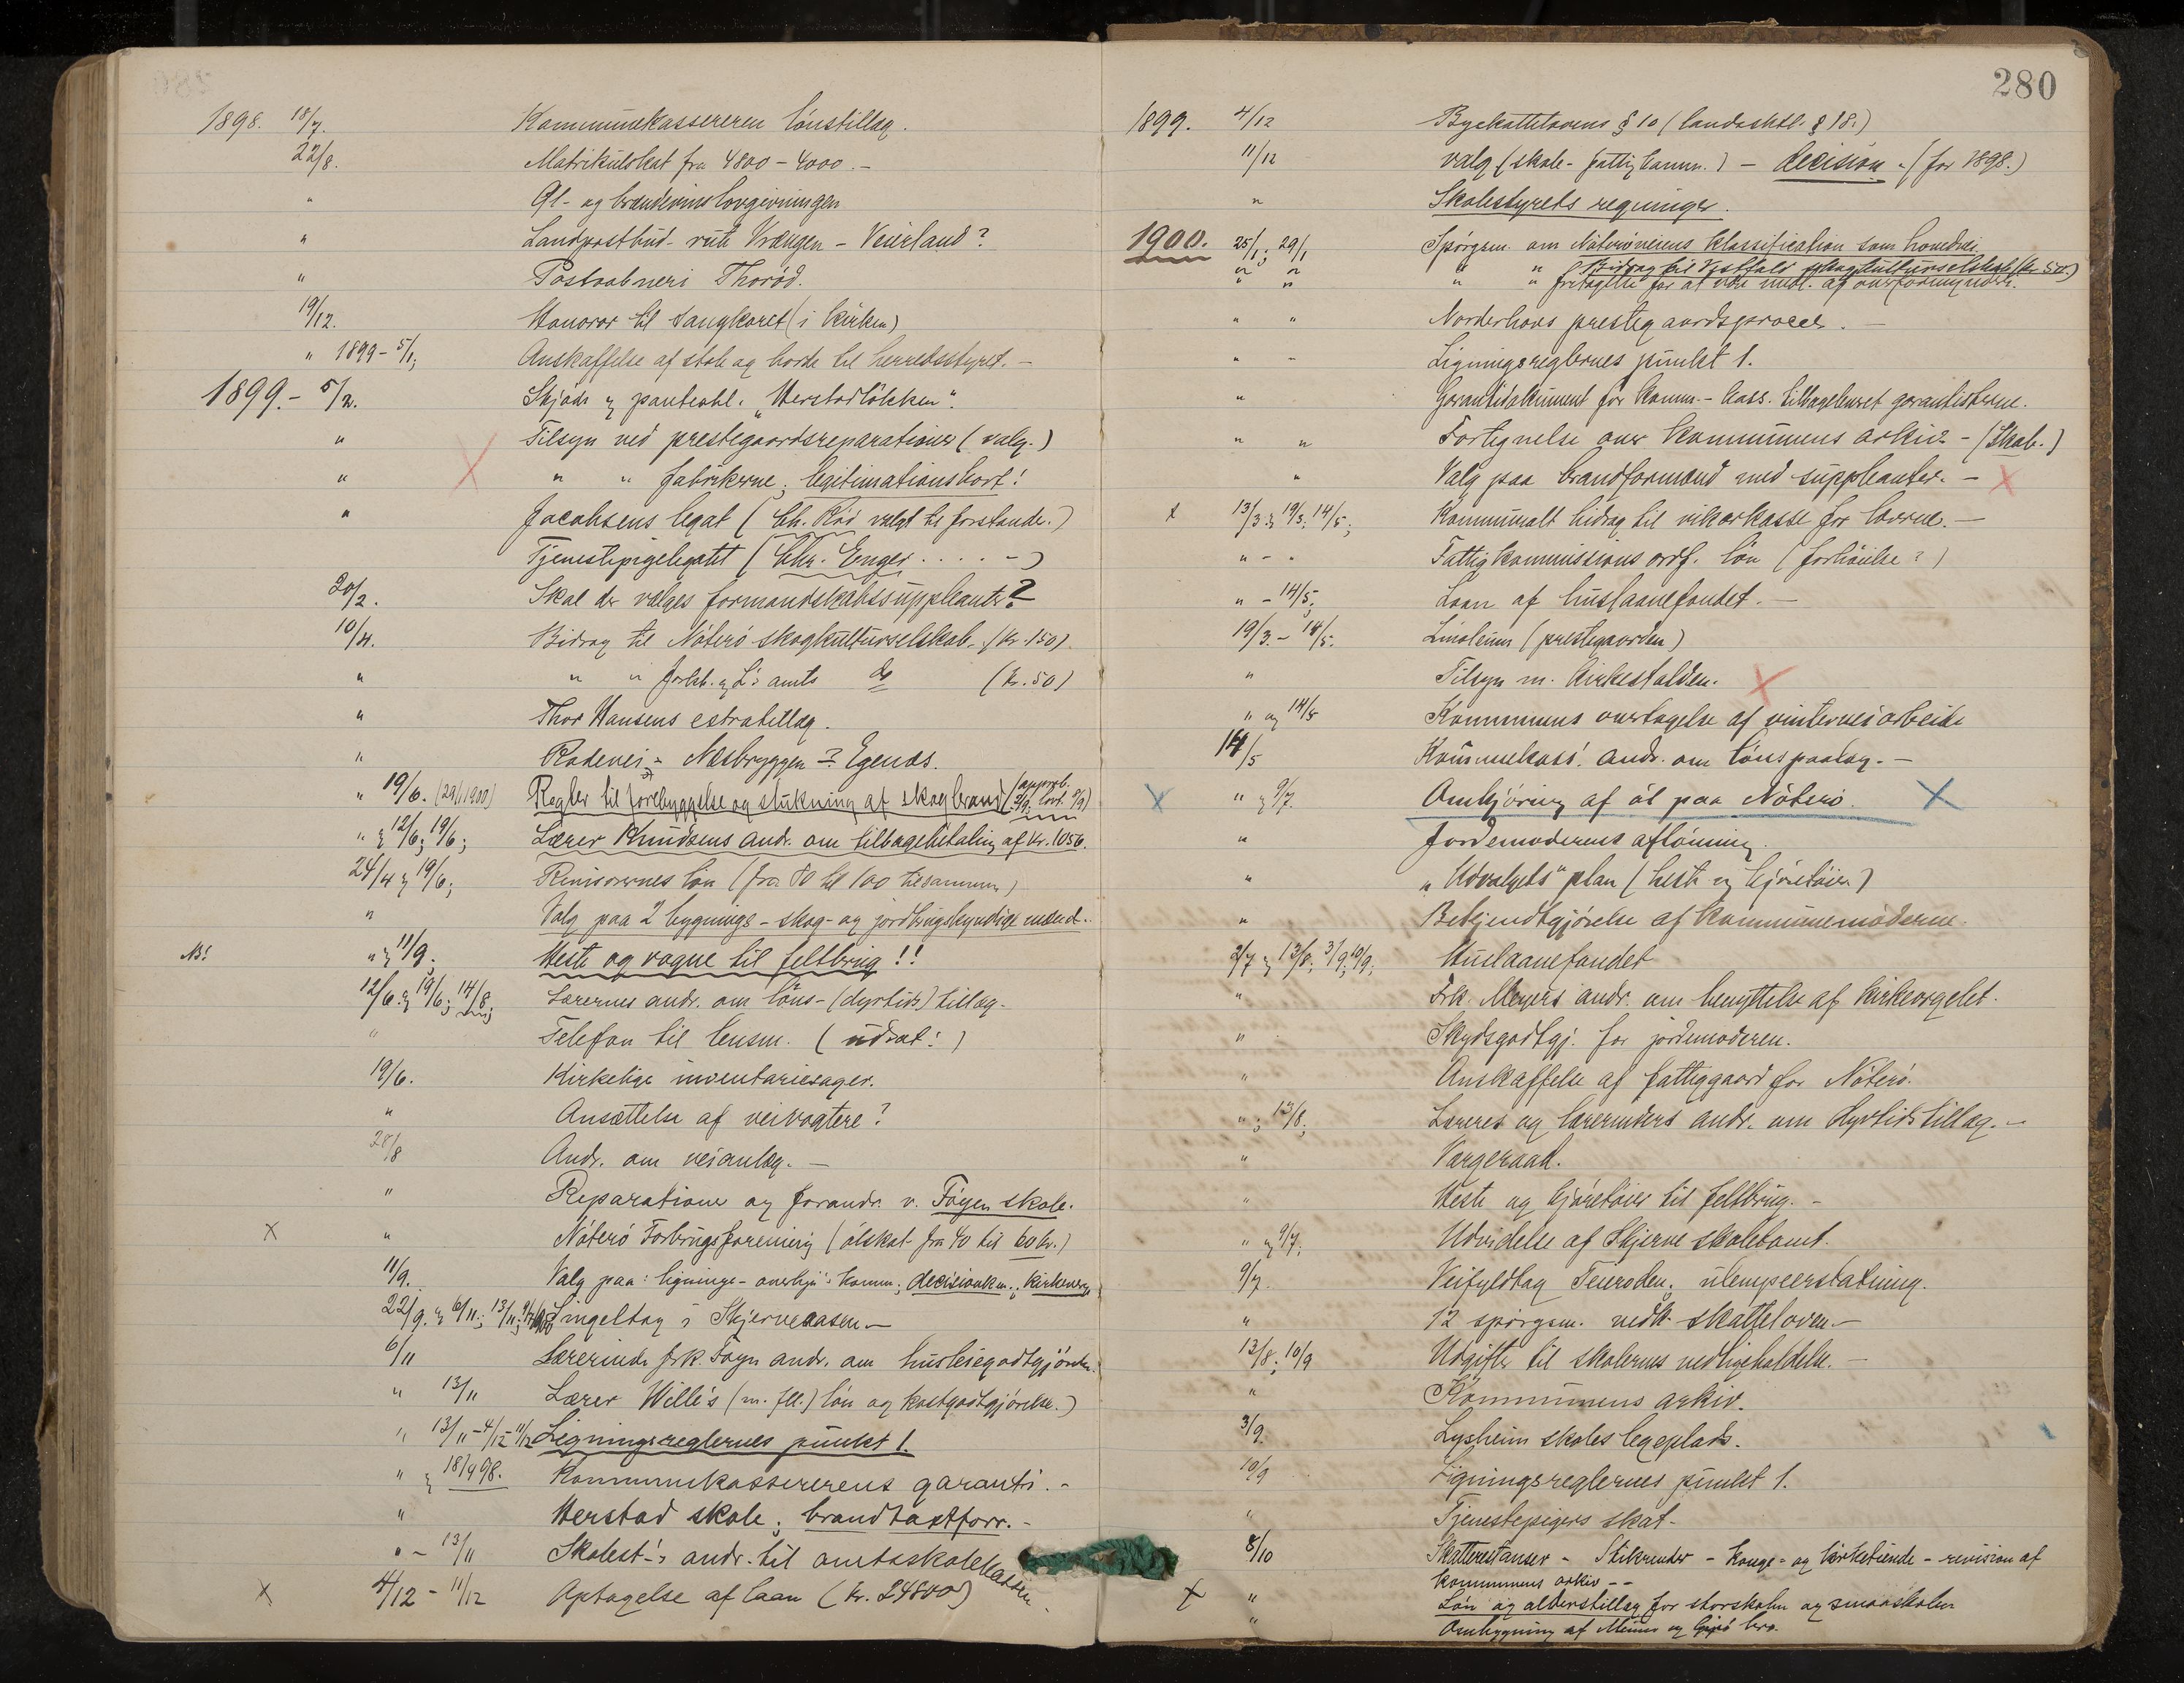 1898. 18/7. Kommunekassereren lönstillæg.
22/8. Matrikulskat fra 4800 - 4000. -
" Öl- og brændevinslovgivningen
" Landpostbud- rute Vrængen - Veierland?
" Postaabneri Thoröd.
19/12. Honorar til sangkoret (i kirken)
" 1899 - 5/1; Anskaffelse af stole og borde til herredsstyret. -
1899. - 5/2. Skjöde og panteobl. "Herstadlökken".
" Tilsyn ved prestegaardsreparationer (valg.)
" " " fabrikerne; legitimationskort!
" Jacobsens legat (Ch. Röd valgt til forstander.)
Tjenestepigelegatet (Chr. Enger . . . . - )
20/2. Skal der vælges formandskabssuppleanter?
10/4. Bidrag til Nöterö skogkulturselskab. (Kr. 150)
" " " J. & L.'s amts do (kr. 50)
" Thor Hansens extratillæg.
" Rodevei - Næsbryggen - Egenæs.
" 19/6. (29/1 1900) Regler til forebyggelse og slukning af skogbrand (approb.
" & 12/6; 19/6; Lærer Knudsens andr. om tilbagebetaling af kr. 1056.
24/4 & 19/6; Revisorernes lön (fra 80 til 100 tilsammen)
" Valg paa 2 bygnings- skog- og jordbrugskyndige mænd.
NB! " & 11/9. Heste og vogne til feltbrug!!
12/6 & 19/6; 14/8; Lærernes andr. om löns- (dyrtids) tillæg -
" Telefon til lensm. (udsat!)
19/6. Kirkelige inventariesager.
" Ansættelse af veivogtere?
28/8 Andr. om veianlæg. -
" Reparationer og forandr. v. Föyen skole.
X " Nöterö Forbrugsforening (ölskat fra 40 til 60 kr.)
11/9. Valg paa: lignings- overlign's komm.; decisionskm.; kirkeverge
22/9. & 6/11; 13/11; Singeltag i Skjerveaasen -
6/11 Lærerinde frk. Foyn andr. om husleiegodtgjörelse.
" 13/11 Lærer Wille's (m. fl.) lön og kostgodtgjörelse.)
" 13/11 - 4/12 - 11/12 Ligningsreglernes punkt 1.
" & 18/4 98. Kommunekassererens garanti. -
" Herstad skole; brandtaxtforr. -
" - 13/11 Skolest.'s andr. til amtsskolekassen.
X 4/12 - 11/12 Optagelse af laan (kr. 24800)
280
1899. 4/12 Byskattelovens § 10 (landsskatl. § 18.)
11/12 Valg (skole- fattigkomm.) - decision - (for 1898.)
" Skolestyrets regninger.
1900. 25/1; 29/1 Spörgsm. om Nöteröveiens klassification som hovedvei.
" " " " Bidrag til Vestfold skogkulturselskab (kr. 50.)
" " " " fritagelse for at være medl. af overformynderi.
" " Norderhovs prestegaardsproces. -
" - Ligningsreglernes punkt 1.
" Garantidokument for komm.-kass. tilbageleveret garantisterne.
" " Fortegnelse over kommunens arkiv - (Skab.)
" Valg paa brandformænd med suppleanter. - X
X 13/3 & 19/3; 14/5; Kommunalt bidrag til vikarkasse for lærere. -
" - " Fattigkommissions ordf. lön (forhöielse?)
" - 14/5; Laan af huslaanefondet. -
19/3. - 14/5. Linoleum (prestegaarden)
" Tilsyn m. kirkestalden. X
" og 14/5 Kommunens overtagelse af vinterveiarbeide
14/5 Kommunekass. andr. om lönspaalæg. -
X " & 9/7. Omkjöring af öl paa Nöterö. X
" Jordemoderens aflönning.
" "Udvalgets" plan (heste og kjöretöier)
" Bekjendtgjörelse af kommunemöderne.
2/7 & 13/8; 3/9; 10/9; Huslaanefondet
" Frk. Meyers andr. om benyttelse af kirkeorgelet.
" Skydsgodtgj. for jordemoderen.
" Anskaffelse af fattiggaard for Nöterö.
" ; 13/8; Læreres og lærerinders andr. om dyrtidstillæg. -
" Vergeraad.
" Heste og kjöretöier til feltbrug. -
" og 9/7; Udvidelse af Skjerve skoletomt.
9/7. Veifyldtag Teieroden; ulempeerstatning.
" 12 spörgsm. vedk. skatteloven. -
13/8; 10/9 Udgifter til skolernes vedligeholdelse. -
" Kommunens arkiv.
3/9. Lysheim skoles legeplads.
10/9 Ligningsreglernes punkt 1.
" Tjenestepigers skat -
8/10 Skatterestanser - Stikrender - konge- og kirketiende - revision af
kommunens arkiv - -
X " Lön og alderstillæg for storskolen og smaaskolen
" Ombygning af bro.